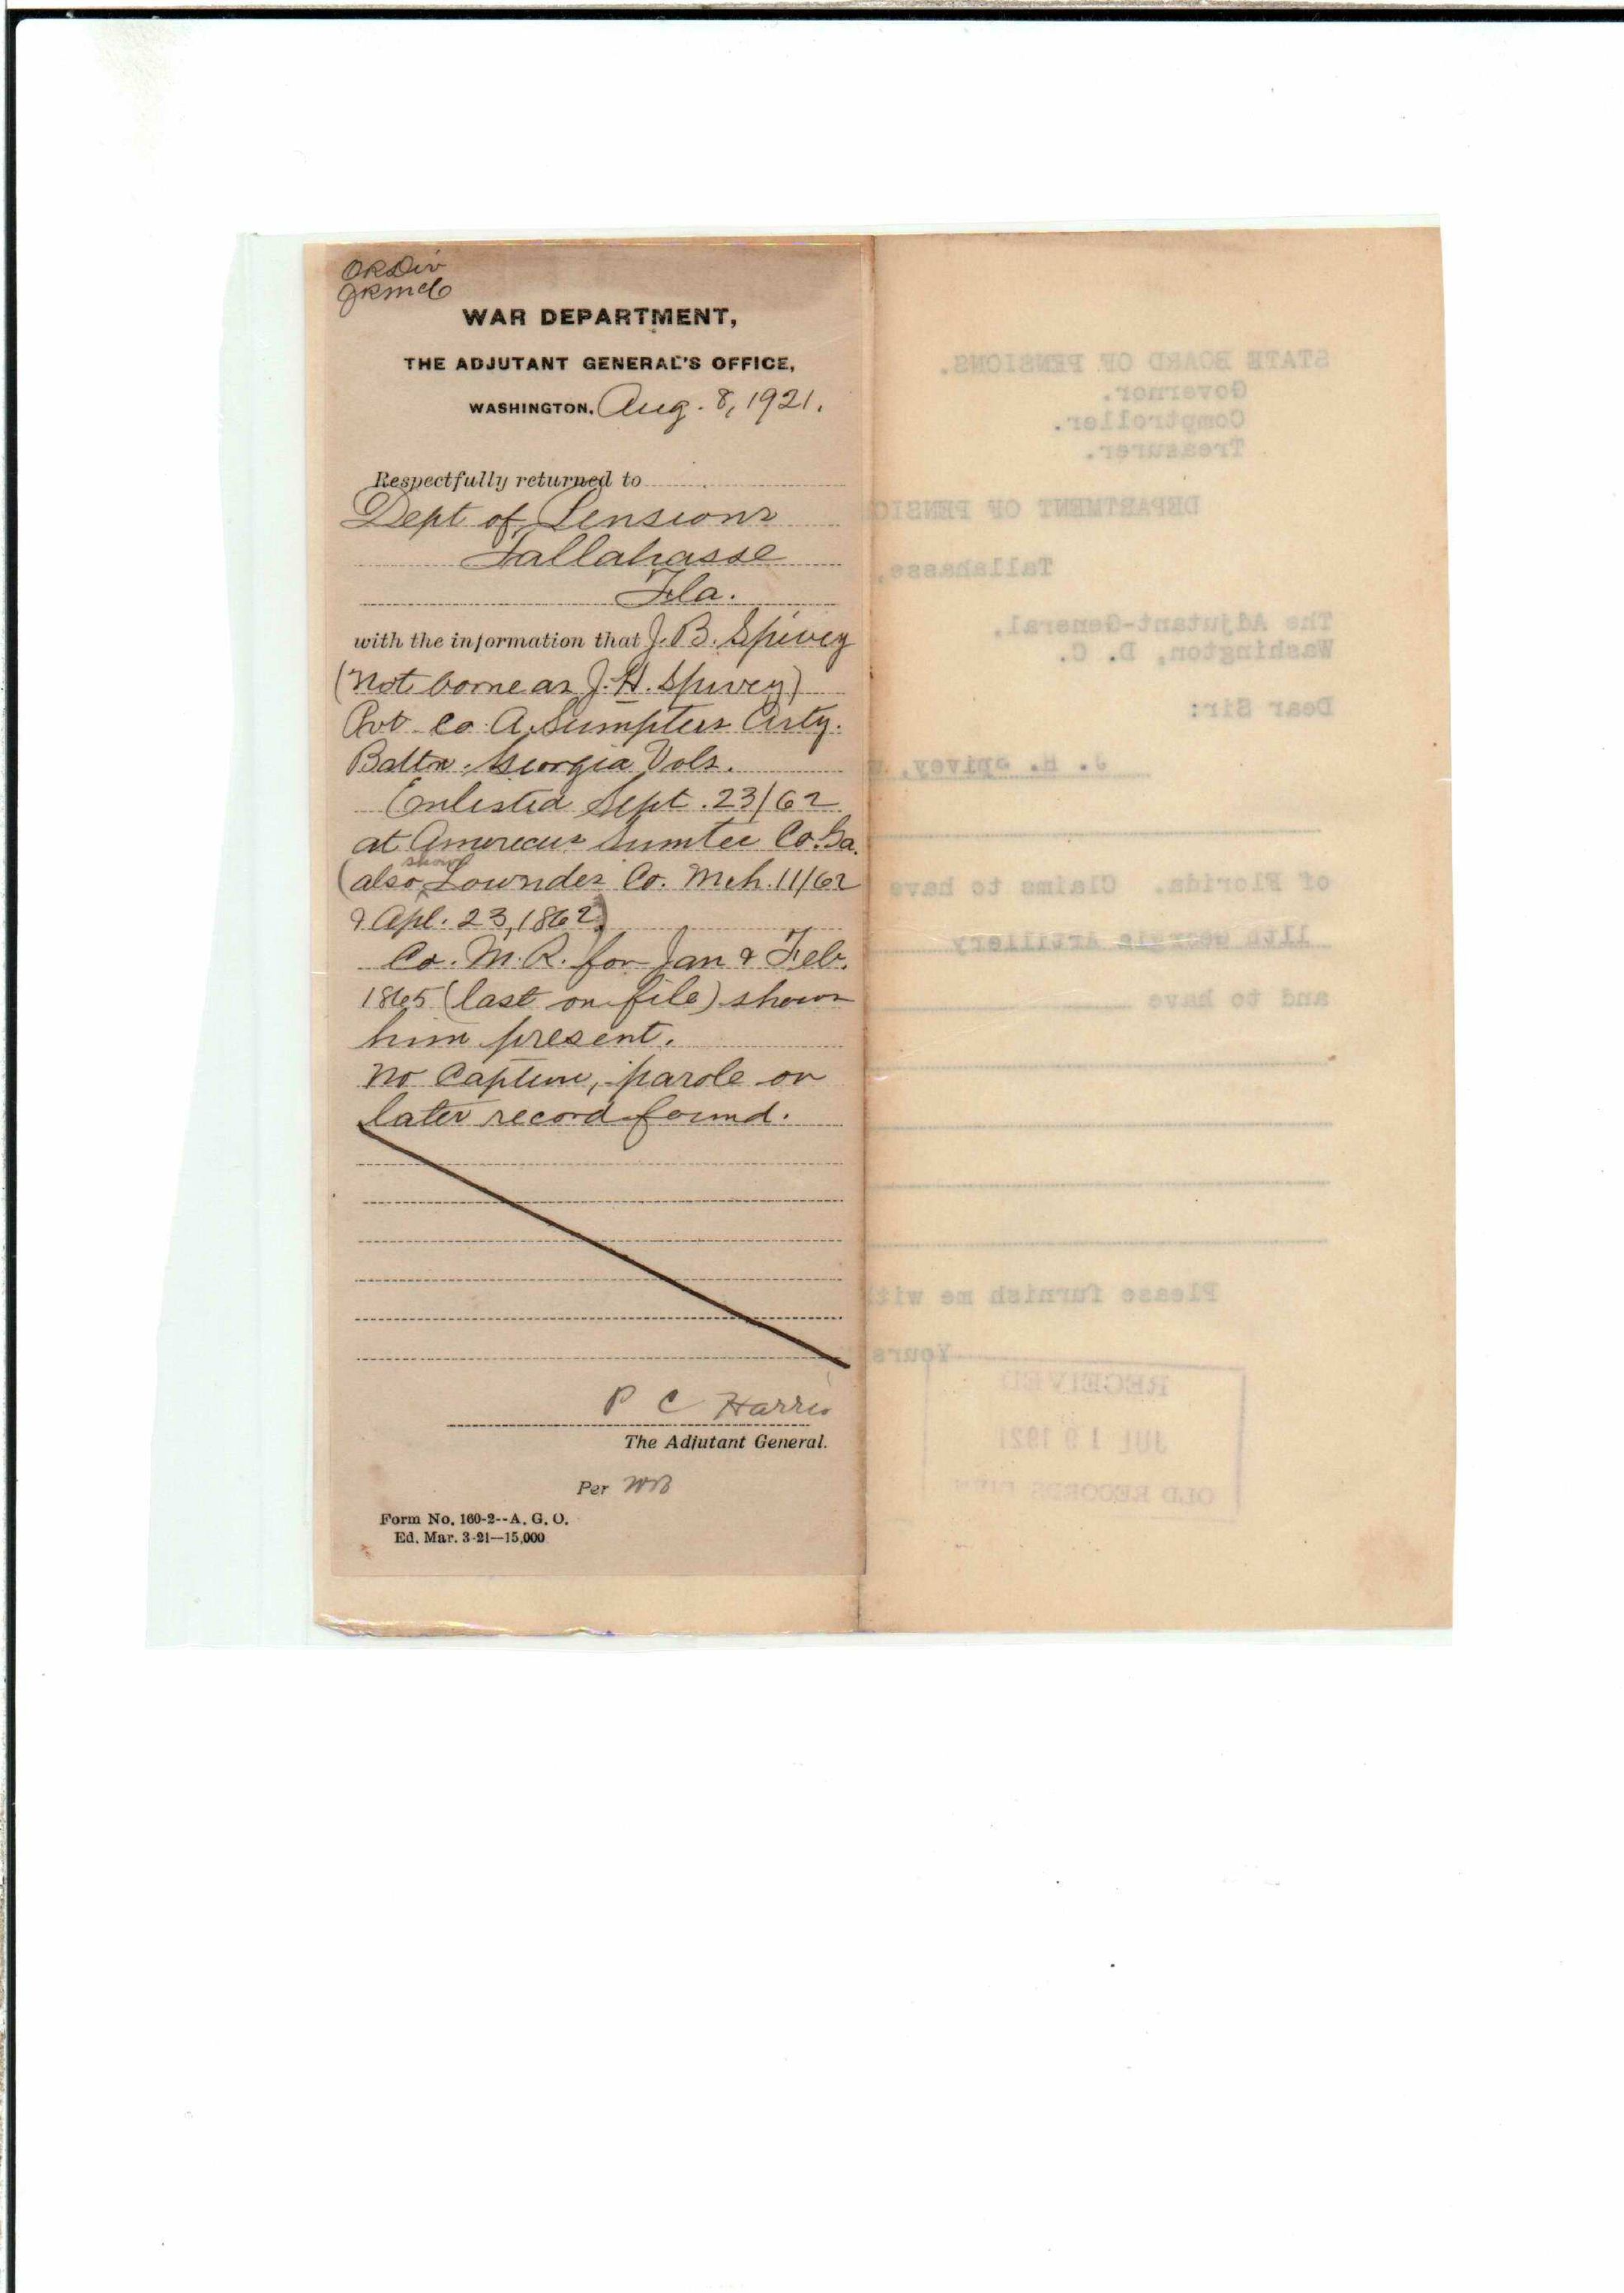 OR Div
WAR DEPARTMENT,
THE ADJUTANT GENERAL'S OFFICE,
WASHINGTON, Aug. 8, 1921.
Respectfully returned to
Dept of Pensions
Tallahasse
Fla.
with the information that J. B. Spivey
(Not borne as J. H. Spivey)
Pvt Co. A. Sumpters Arty.
Battn. Georgia Vols.
Enlisted Sept. 23/62
at Americus Sumter Co. Ga.
(also shown Lownder Co. Mch. 11/62
& Apl. 23, 1862)
Co. M. R. for Jan & Feb.
1865 (last on file) shows
him present.
No Capture, parole or
later record found.
P C Harris
The Adjutant General.
Per WB
Form No. 160-2--A. G. O.
Ed. Mar. 3-21—15,000
STATE BOARD OF PENSIONS.
Governor.
Comptroller.
Treasurer.
DEPARTMENT OF PENSIO
Tallahasse,
The Adjutant-General,
Washington, D. C.
Dear Sir:
J. H. Spivey,
of Florida. Claims to have
11th Georgia Artillery
and to have
Please furnish me wit
Yours
RECEIVED
JUL 19 1921
OLD RECORDS DIV'N